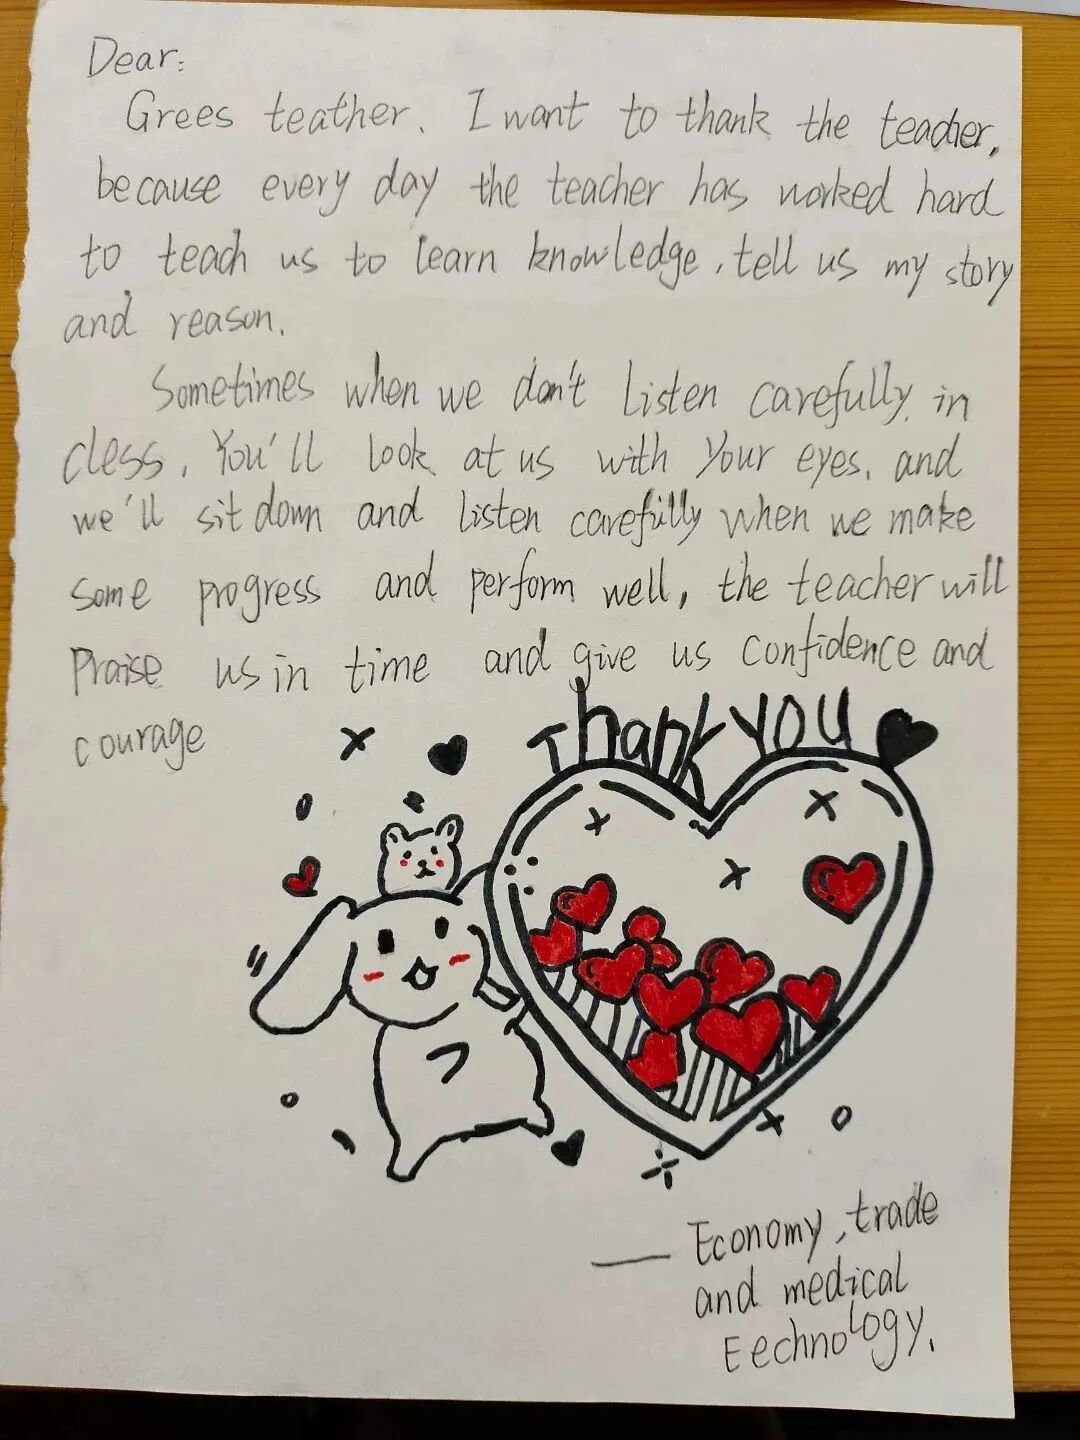 Dear:
Grees teather. I want to thank the teacher,
because every day the teacher has worked hard
to teach us to learn knowledge, tell us my story
and reason.
Sometimes when we don't listen carefully in
cless, You'll look at us with Your eyes, and
we'll sit down and listen carefully when we make
some progress and perform well, the teacher will
Praise us in time and give us confidence and
courage
Thank you
— Economy, trade
and medical
Eechnology.